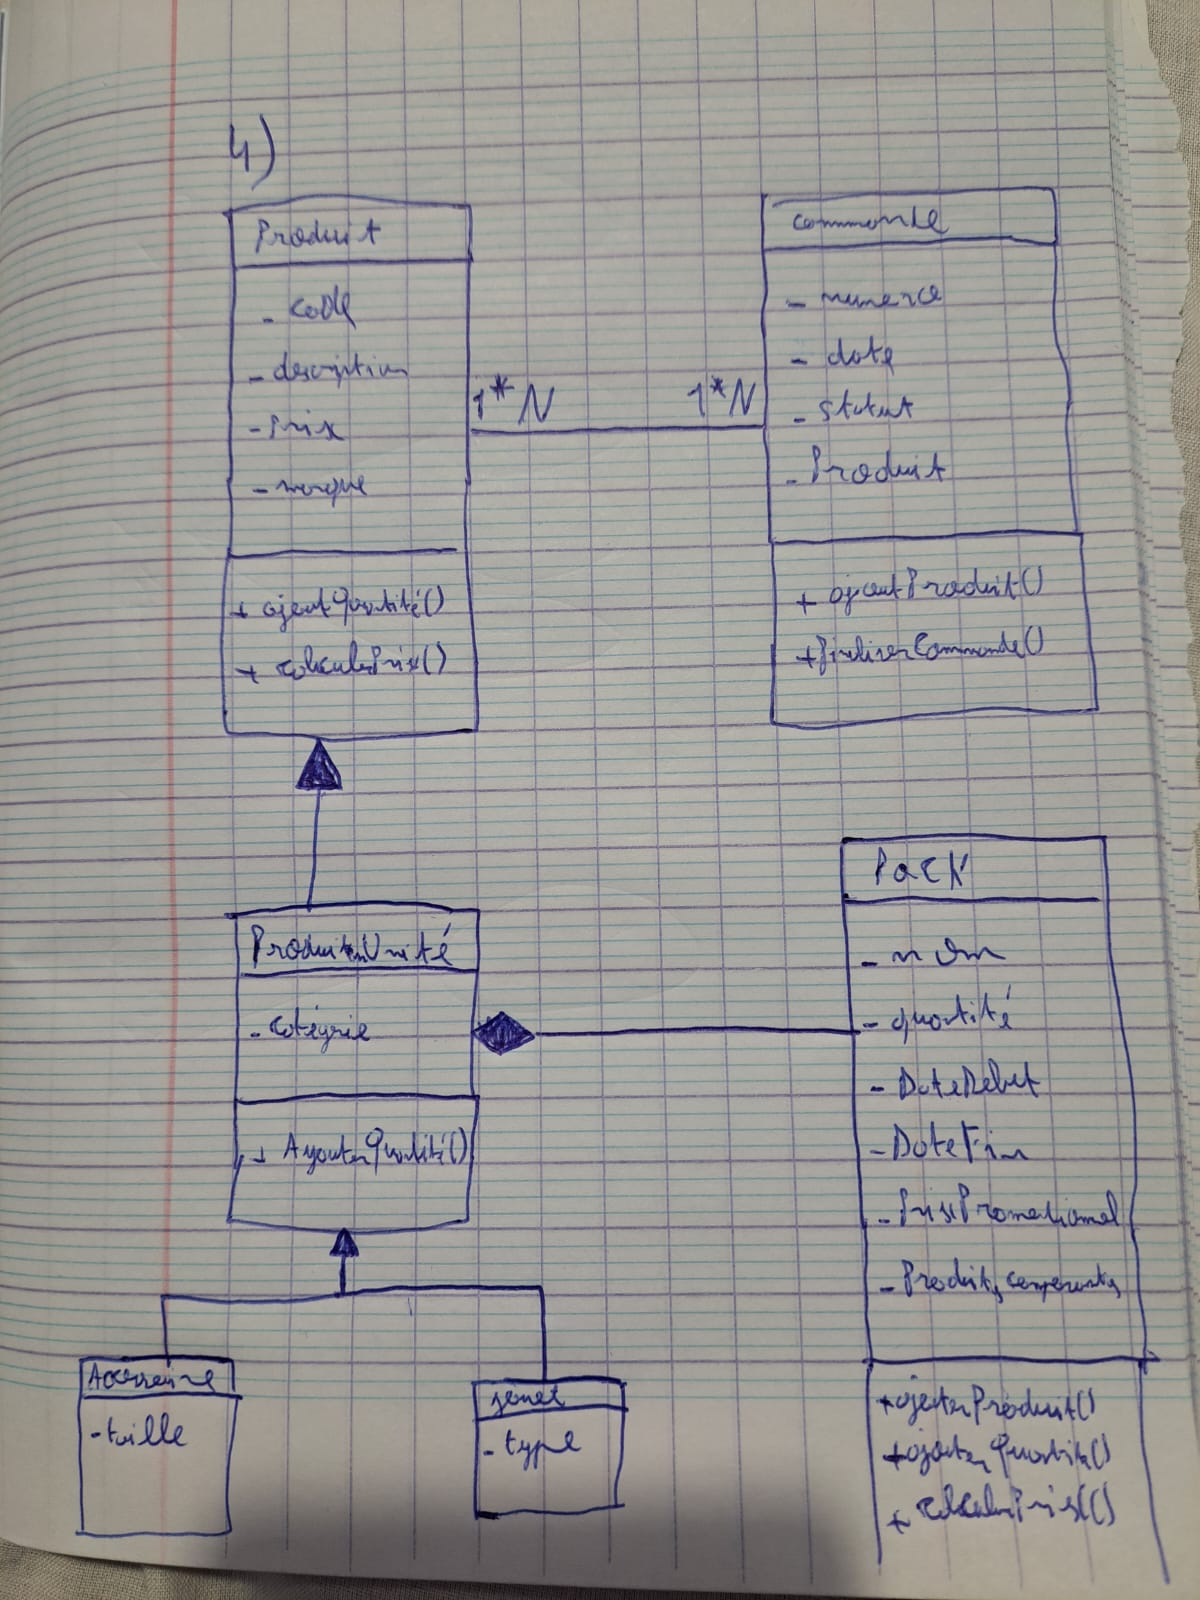 4)
Produit
- code
- description
- Prix
- marque
+ ajoutQuantité()
+ calculerPrix()
1*N
1*N
Commande
- numero
- date
- statut
- Produit
+ ajoutProduit()
+ finliserCommande()
ProduitUnité
- catégorie
+ AjouterQuantité()
Pack
- nom
- quantité
- DateDebut
- DateFin
- PrixPromotionnel
- Produits composants
+ ajouterProduit()
+ ajouterQuantite()
+ calculerPrix()
Accessoire
- taille
jouet
- type